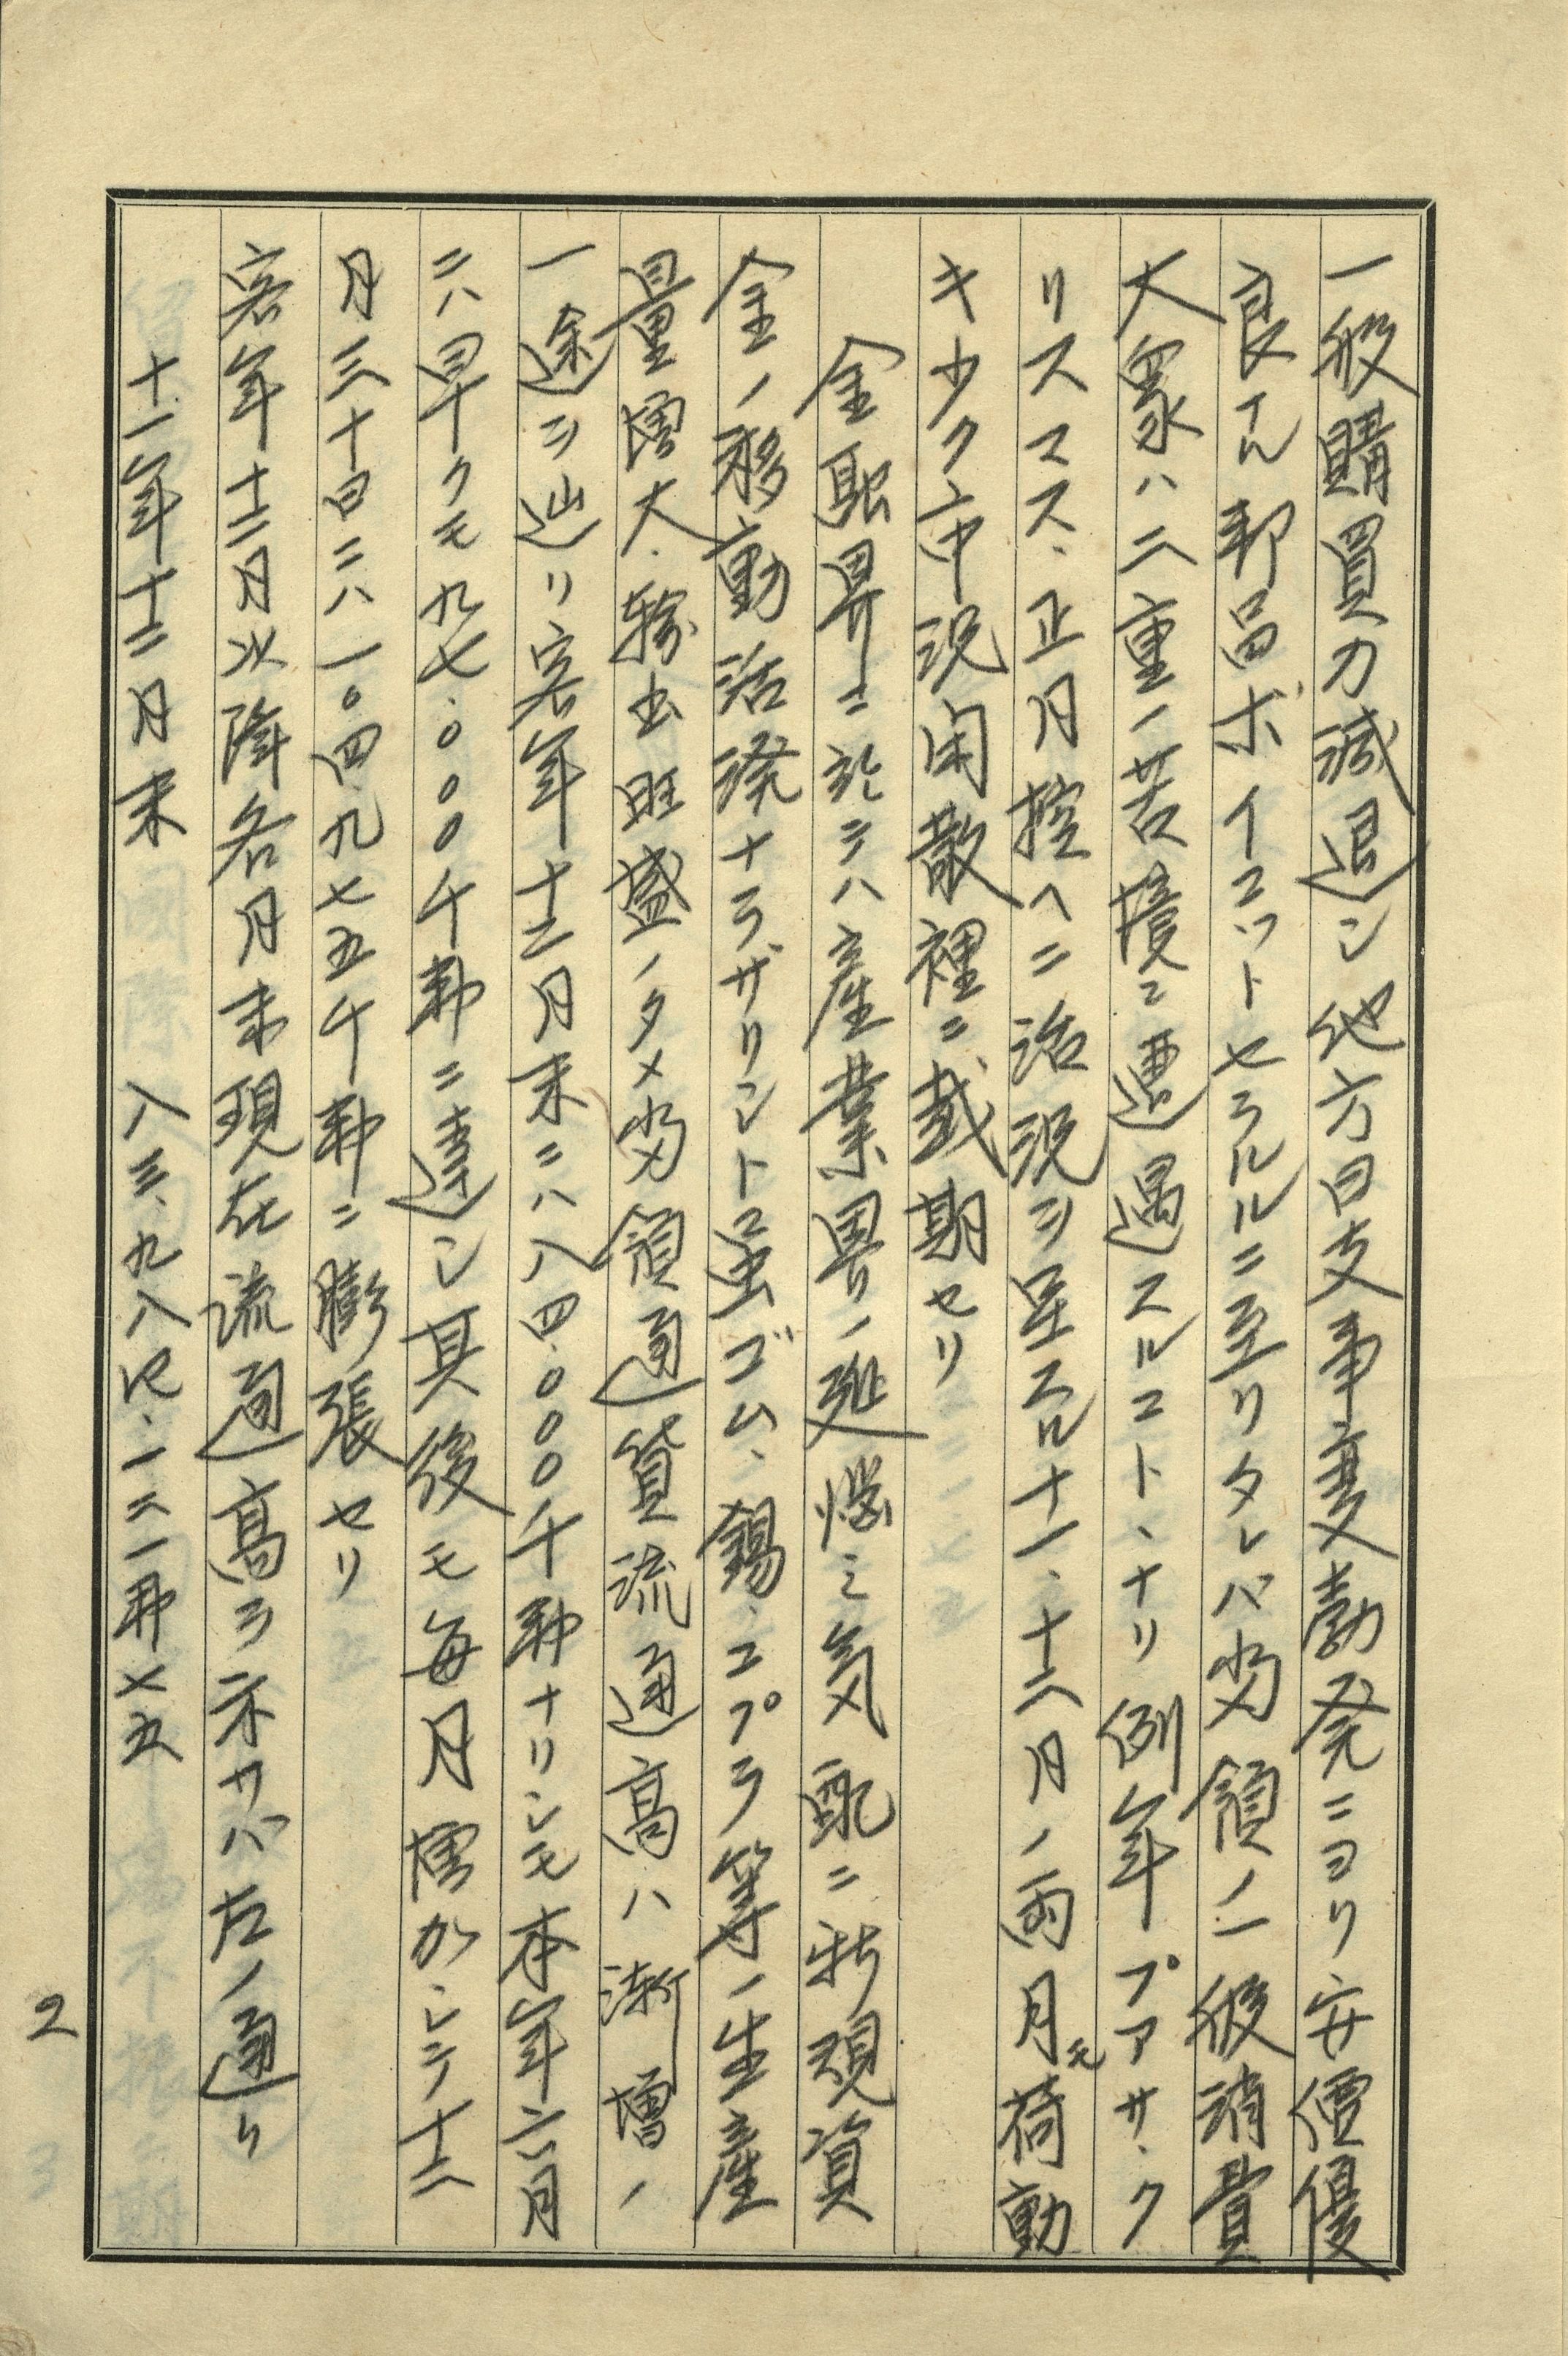 一般購買力減退シ他方日支事変勃発ニヨリ安價優
良ナル邦品ボイコットセラルルニ至リタレバ当領ノ一般消費
大衆ハ二重ノ苦境ニ遭遇スルコトヽナリ例年プアサ、ク
リスマス、正月控ヘニ活況ヲ呈スル十一、十二月ノ両月モ荷動
キ少ク市況閑散裡ニ越期セリ
金融界ニ於テハ産業界ノ延悩ミ気配ニ非現資
金ノ移動活溌ナラザリシト虽ゴム、錫、コプラ等ノ生産
量増大、輸出旺盛ノタメ当領通貨流通高ハ漸増ノ
一途ヲ辿リ客年十二月末ニハ八四、〇〇〇千弗ナリシモ本年六月
ニハ早クモ九七、〇〇〇千弗ニ達シ其後モ毎月増加シテ十二
月三十日ニハ一〇四、九七五千弗ニ膨張セリ
客年十二月以降各月末現在流通高ヲ示サバ左ノ通リ
十一年十二月末 八三、九八四、一二一弗七五
2